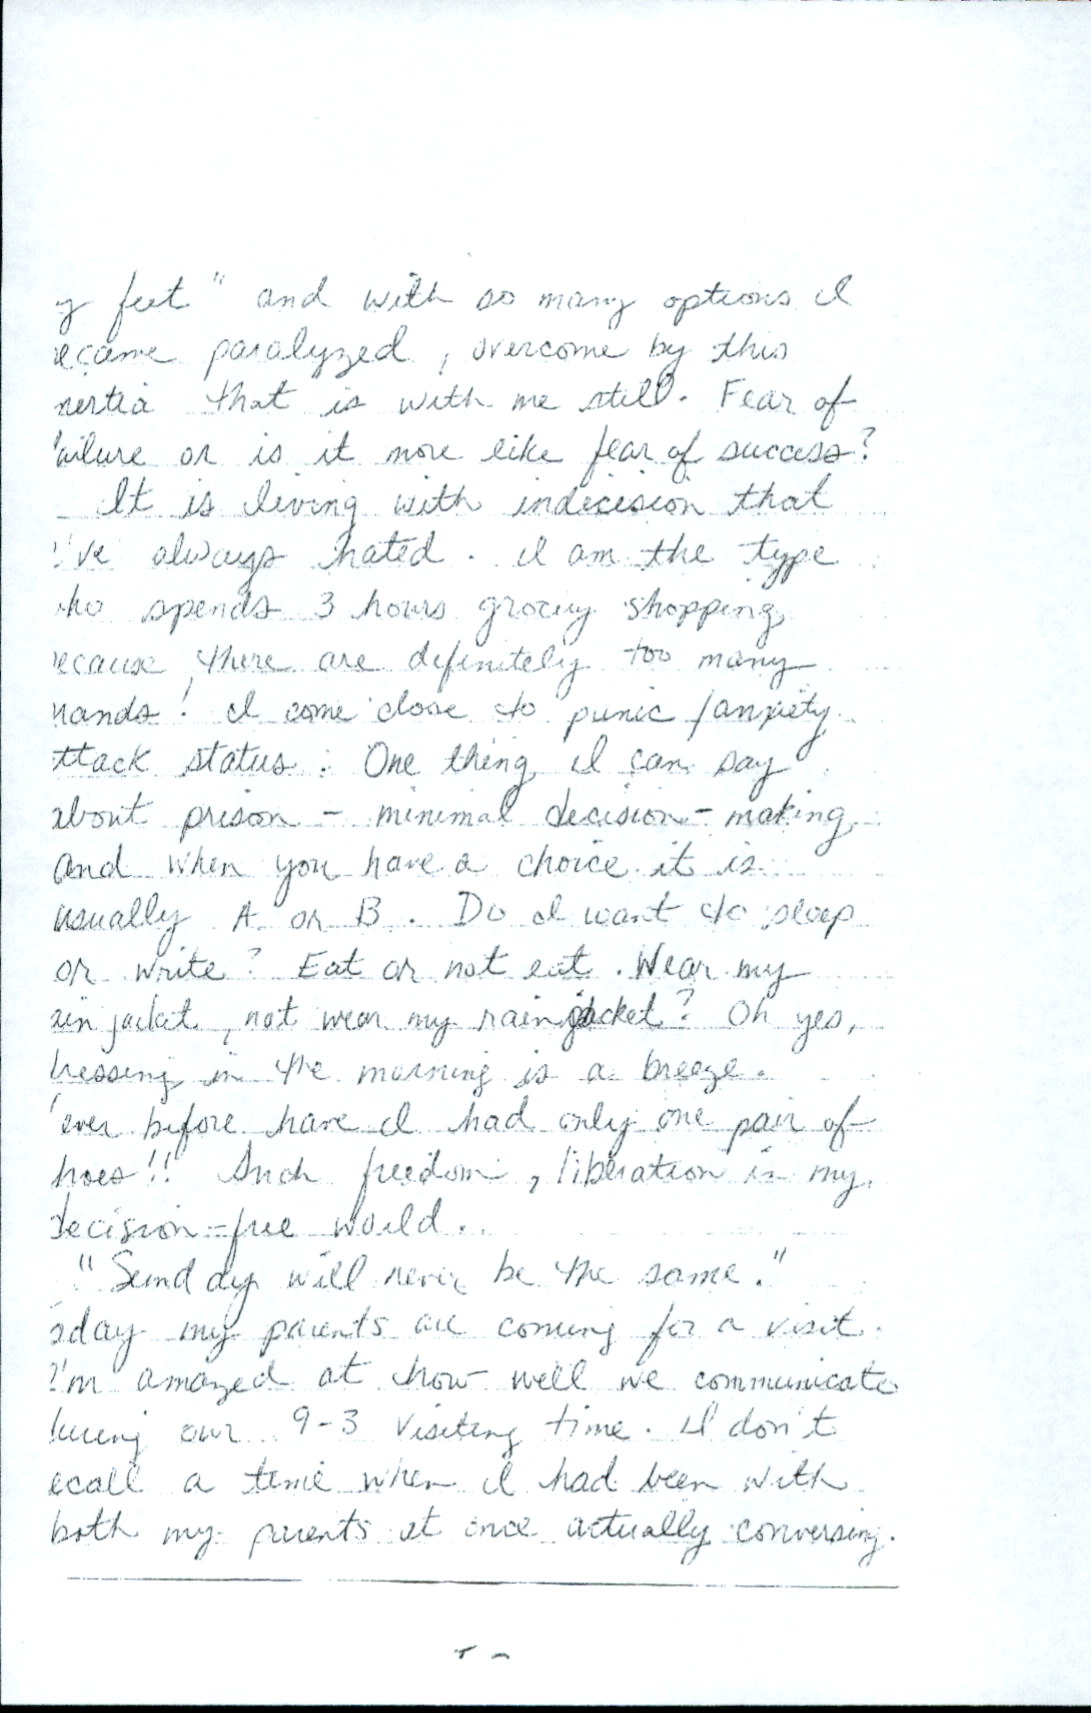 y feet" and with so many options I
ecame paralyzed, overcome by this
nertia that is with me still. Fear of
ailure or is it more like fear of success?
It is living with indecision that
I've always hated. I am the type
ho spends 3 hours grocery shopping
ecause there are definitely too many
rands! I come close to panic/anxiety
ttack status. One thing I can say
about prison - minimal decision-making
and when you have a choice it is
usually A or B. Do I want to sleep
or write? Eat or not eat. Wear my
ain jacket, not wear my rain jacket? Oh yes,
ressing in the morning is a breeze.
ever before have I had only one pair of
hoes!! Such freedom, liberation in my
decision-free world.
"Sunday will never be the same."
oday my parents are coming for a visit.
I'm amazed at how well we communicate
during our 9-3 visiting time. I don't
ecall a time when I had been with
both my parents at once actually conversing.